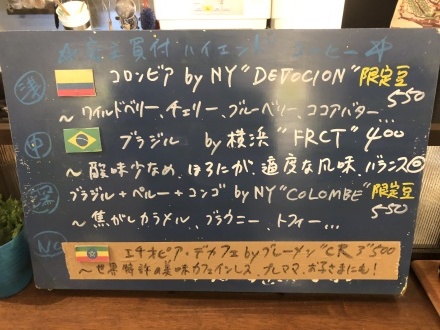 店主買付ハイエンドコーヒー
浅 コロンビア by NY "DEVOCION" 限定豆 550
〜ワイルドベリー、チェリー、ブルーベリー、ココアバター...
中 ブラジル by 横浜 "FRCT" 400
〜酸味少なめ、ほろにが、適度な風味、バランス◎
深 ブラジル+ペルー+コンゴ by NY "COLOMBE" 限定豆 550
〜焦がしカラメル、ブラウニー、トフィー...
エチオピア・デカフェ by ブレーメン "CR3" 500
〜世界特許の美味カフェインレス、プレママ、お子さまにも!